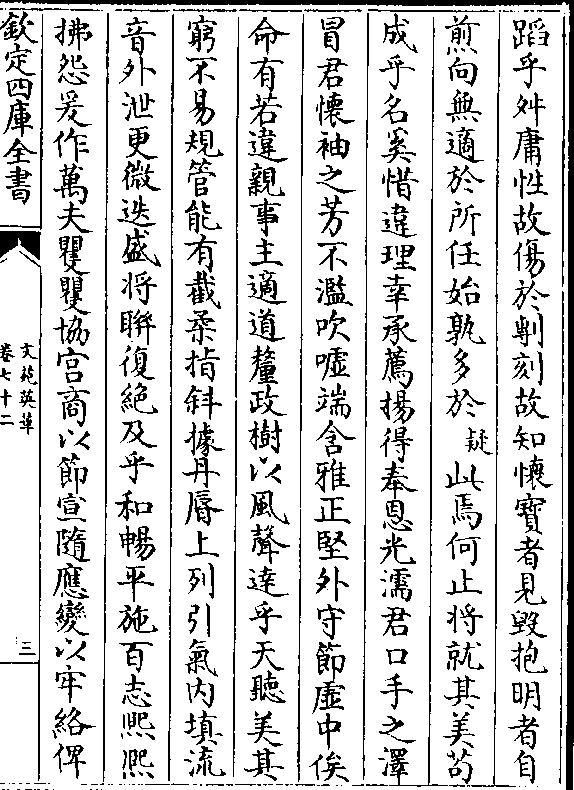 蹈乎舛庸性故傷於剸刻故知懷寶者見毀抱明者自
煎向無適於所任始孰多於疑此焉何止将就其美苟
成乎名奚惜違理幸承薦揚得奉恩光濡君口手之澤
冒君懷袖之芳不濫吹嘘端含雅正堅外守節虚中俟
命有若違親事主適道釐政樹以風聲達乎天聽美其
窮不易規管能有截柔指斜據丹脣上列引氣内填流
音外泄更微迭盛将聨復絶及乎和暢平施百志熈熈
拂怨爰作萬夫瞿瞿協宫商以節宣隨應變以牢絡俾
欽定四庫全書
文苑英華
卷七十二
三